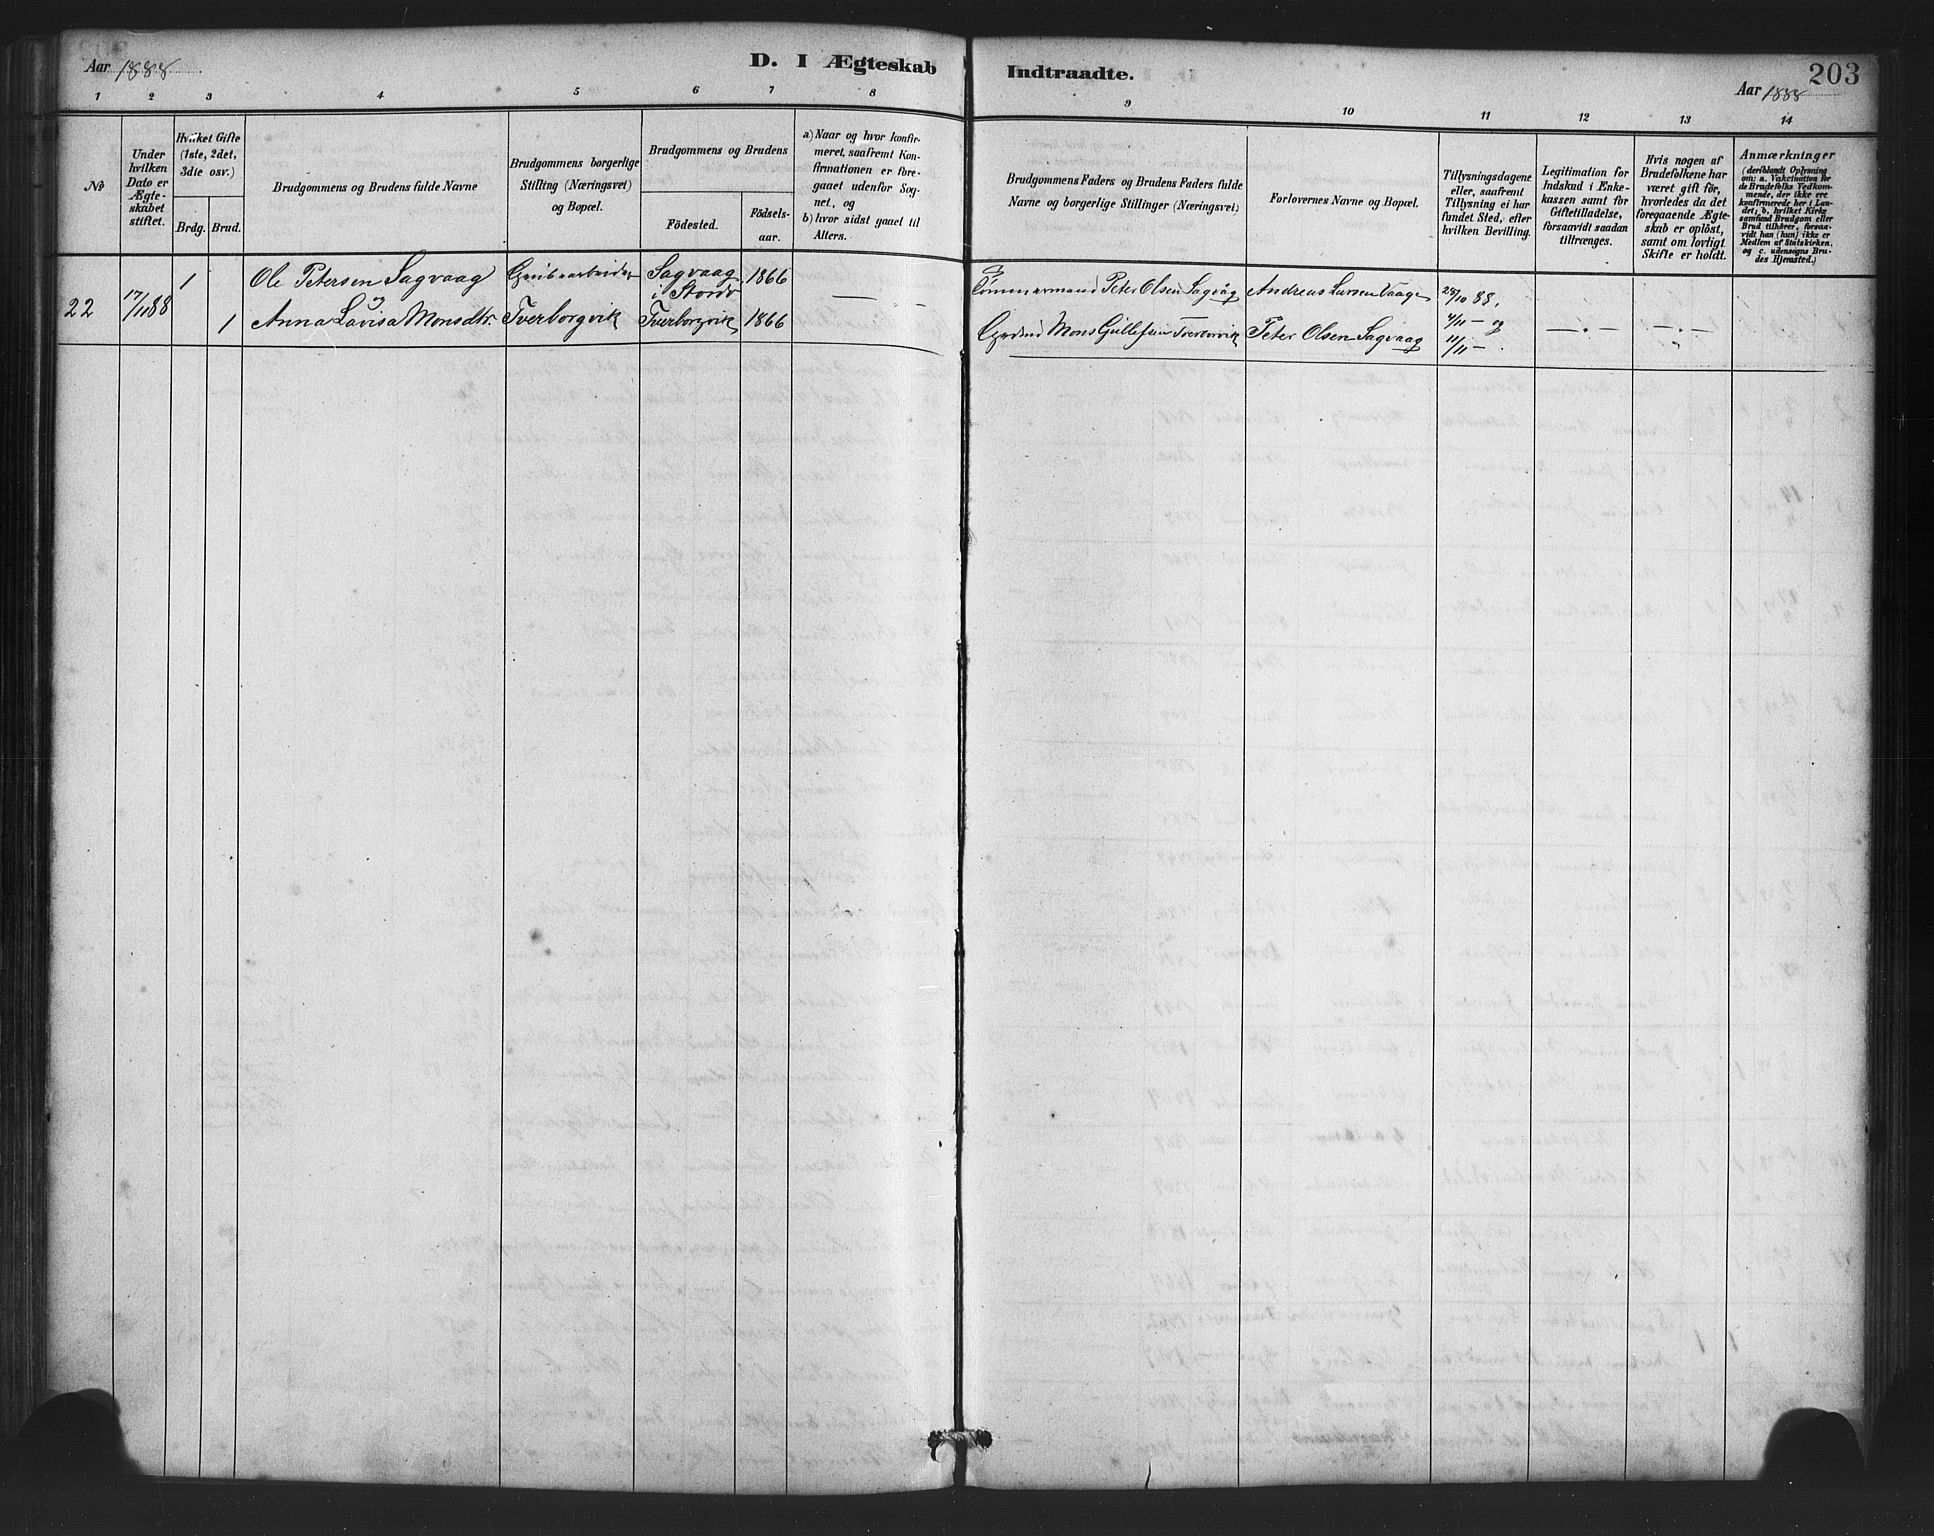 Aar 1888
D. I Ægteskab
Indtraadte.
203
Aar 1888
1 2 3 4 5 6 7 8 9 10 11 12 13 14
No
Under
hvilken
Dato er
Ægte-
skabet
stiftet.
Hvilket Gifte
(1ste, 2det,
3die osv.)
Brdg. Brud.
Brudgommens og Brudens fulde Navne
Brudgommens borgerlige
Stilling (Næringsvei)
og Bopæl.
Brudgommens og Brudens
Födested.
Födsels-
aar.
a) Naar og hvor konfir-
meret, saafremt Kon-
firmationen er fore-
gaaet udenfor Sog-
net, og
b) hvor sidst gaaet til
Alters.
Brudgommens Faders og Brudens Faders fulde
Navne og borgerlige Stillinger (Næringsvei)
Forlovernes Navne og Bopæl.
Tillysningsdagene
eller, saafremt
Tillysning ei har
fundet Sted, efter
hvilken Bevilling.
Legitimation for
Indskud i Enke-
kassen samt for
Giftetilladelse,
forsaavidt saadan
tiltrænges.
Hvis nogen af
Brudefolkene har
været gift för,
hvorledes da det
foregaaende Ægte-
skab er oplöst,
samt om lovligt
Skifte er holdt.
Anmærkninger
(deriblandt Oplysning
om: a. Vakcination for
de Brudefolks Vedkom-
mende, der ikke ere
konfirmerede her i Lan-
det, b. hvilket Kirke
samfund Brudgom eller
Brud tilhörer, forsaa-
vidt han (hun) ikke er
Medlem af Statskirken,
og c. udensogns Bru-
des Hjemsted.)
22 17/11 88 1 Ole Petersen Sagvaag Grubearbeider Sagvaag 1866 Tömmermand Peter Olsen Sagvåg Andreas Larsen Vaage 28/10 88,
og i Stord 4/11 – og
1 Anna Lavisa Monsdtr. Tverborgvik Tverborgvik 1866 Gaardmd Mons Gullefsen Peter Olsen Sagvaag 11/11 –